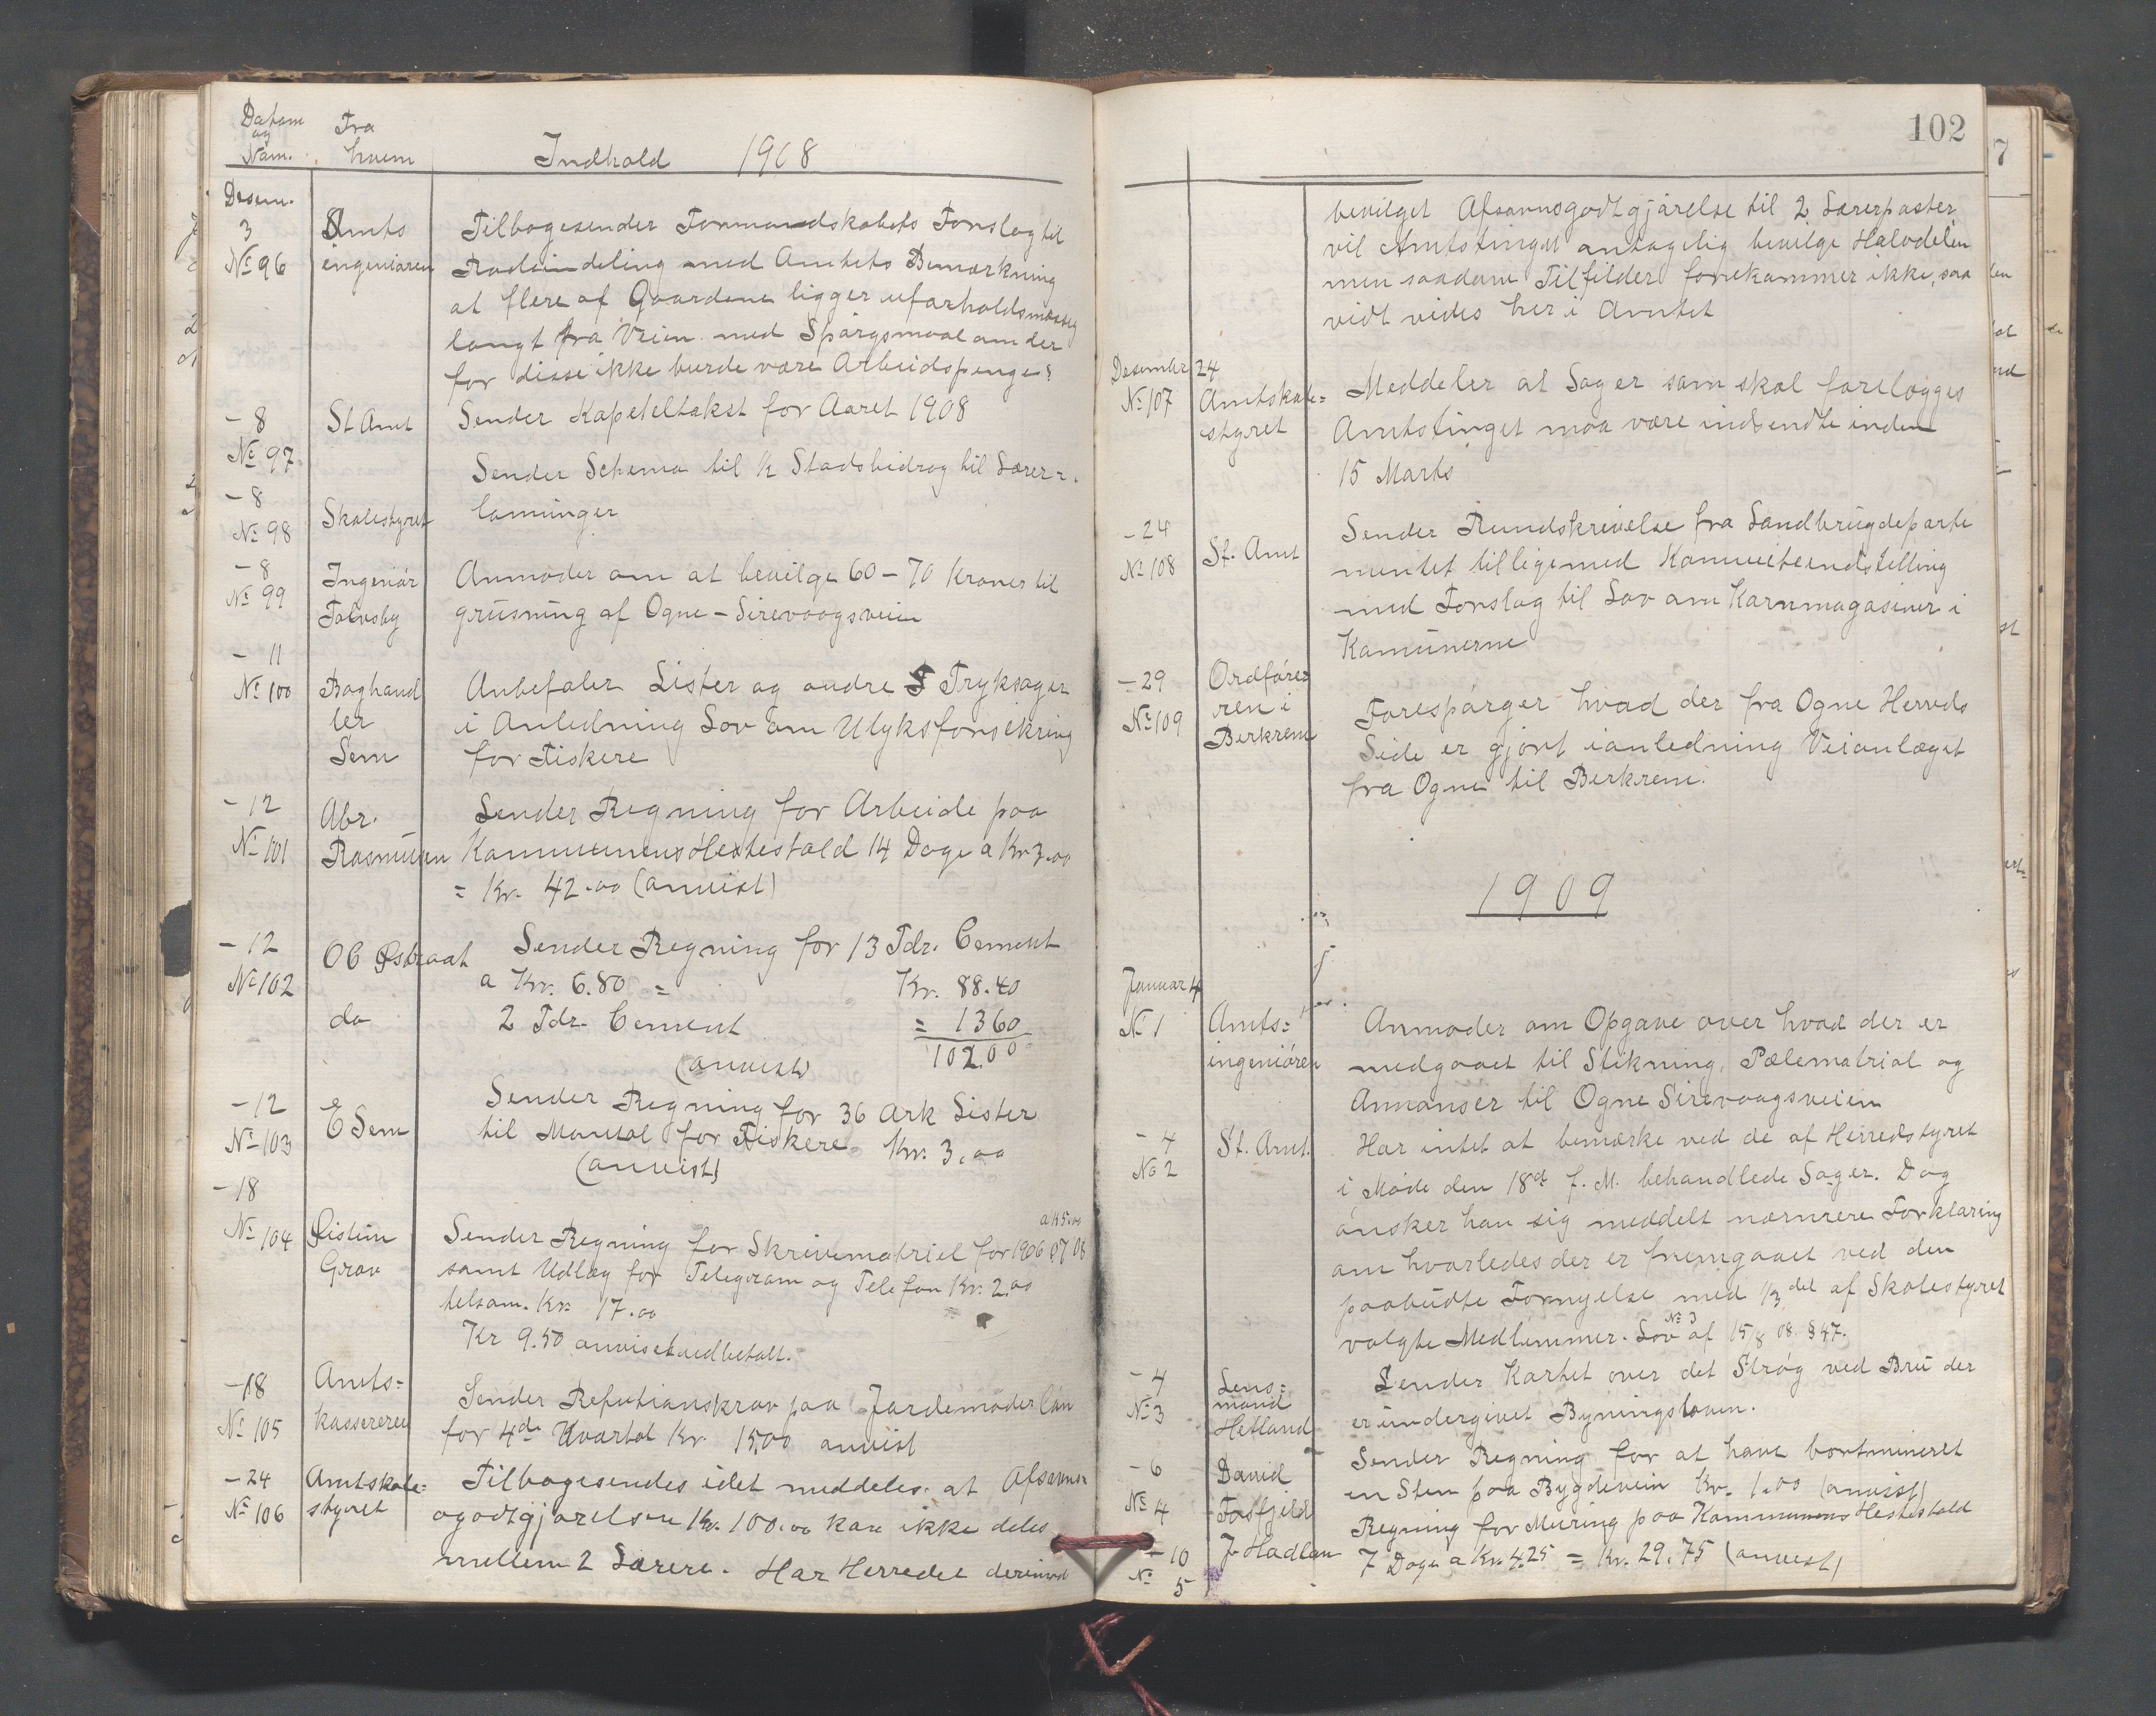 Datum
og
Num.
Fra
hvem
Indhold 1908
Desem.
3
No 96
Amts
ingeniøren
Tilbagesender Formandskabets Forslag til
Rodeinddeling med Amtets Bemærkning
at flere af Gaardene ligger uforholdsmæssig
langt fra Veien med Spørgsmaal om der
for disse ikke burde være Arbeidspenge?
- 8
No 97
St Amt
Sender Kapeteltakst for Aaret 1908
- 8
No 98
Skolestyret
Sender Schema til ½ Stadsbidrag til Lærer=
lønninger
- 8
No 99
Ingeniør
Anmoder om at bevilge 60 - 70 Kroner til
grusning af Ogne - Sirevaagsveien
- 11
No 100
Boghand
ler
Sem
Anbefaler Lister og andre Tryksager
i Anledning Lov om Ulyksforsikring
for Fiskere
- 12
No 101
Abr.
Rasmusen
Sender Regning for Arbeide paa
Kommunens Hestestald 14 Dage a Kr 3.00
= Kr. 42.00 (anvist)
- 12
No 102
OC Østraat
Sender Regning for 13 Tdr. Cement
a Kr. 6.80 = Kr. 88.40
do
2 Tdr. Cement = 13 60
(anvist) 102.00
- 12
No 103
E Sem
Sender Regning for 36 Ark Lister
til Mantal for Fiskere Kr. 3.00
(anvist)
- 18
No 104
Eistein
Grav
a Kr 5.00
Sender Regning for Skrivematriel for 1906 07 08
samt Udlæg for Telegram og Telefon Kr. 2.00
telsam. Kr. 17.00
Kr 9.50 anvist
- 18
No 105
Amts=
kassereren
Sender Refutionskrav paa Jordemoderløn
for 4de Kvartal Kr. 15.00 anvist
- 24
No 106
Amtskole=
styret
Tilbagesendes idet meddeles at Afsavns
ogodtgjørelsen Kr. 100.00 kan ikke deles
mellem 2 Lærere. Har Herredet derimod
102
bevilget Afsavnsgodtgjørelse til 2 Lærerposter
vil Amtstinget antagelig bevilge Halvdelen
men saadane Tilfilder forekommer ikke, saa
vidt vides her i Amtet
Desember 24
No 107
Amtskole=
styret
Meddeler at Sager som skal forelægges
Amtstinget maa være indsendte inden
15 Marts
- 24
No 108
St. Amt
Sender Rundskrivelse fra Landbrugdeparte
mentet tilligemed Komiteindstilling
med Forslag til Lov om Kornmagasiner i
Komunerne
- 29
No 109
Ordføre=
ren i
Berkrem
Forespørger hvad der fra Ogne Herreds
Side er gjort ianledning Veianlæget
fra Ogne til Berkrem.
1909
Januar 4
No 1
Amts=
ingeniøren
Anmoder om Opgave over hvad der er
medgaaet til Stikning, Pælematrial og
Annanser til Ogne Sirevaagsveien
- 4
No 2
St. Amt.
Har intet at bemærke ved de af Herredstyret
i Møde den 18de f. M. behandlede Sager. Dog
ønsker han sig meddelt nærmere Forklaring
om hvorledes der er fremgaaet ved den
paabudte Fornyelse med 1/3 del af Skolestyret
valgte Medlemmer. Lov No 3 af 15/8 08. § 47.
- 4
No 3
Lens=
mand
Hetland
Sender Kartet over det Strøg ved Bru der
er undergivet Bygningsloven.
- 6
No 4
David
Fosfjeld
Sender Regning for at have bortmineret
en Sten paa Bygdevein Kr. 1.00 (anvist)
- 10
No 5
J Hadlan
Regning for Muring paa Kommunens Hestestald
7 Dage a Kr. 4.25 = Kr. 29.75 (anvist)